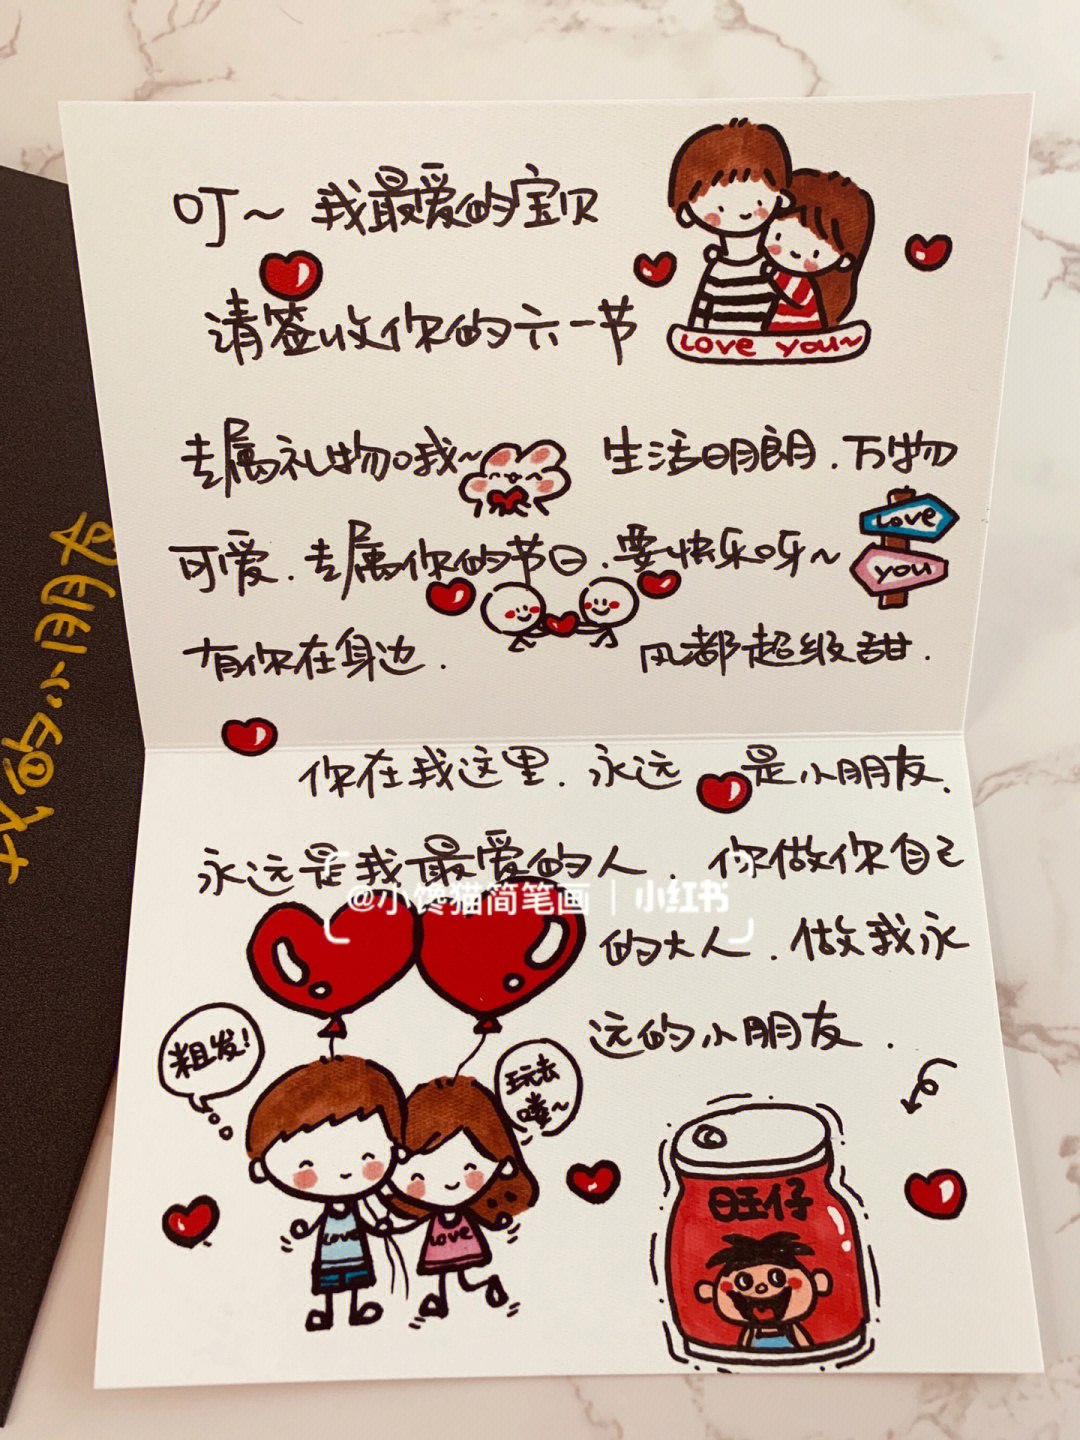 叮~ 我最爱的宝贝
请签收你的六一节
专属礼物哦~ 生活明朗.万物
可爱.专属你的节日.要快乐呀~
有你在身边. 风都超级甜.
你在我这里.永远是小朋友.
永远是我最爱的人. 你做你自己
的大人.做我永
远的小朋友.
Love you~
Love
you
粗发!
玩去
喽~
Love
Love
旺仔
我的小朋友
@小馋猫简笔画 | 小红书